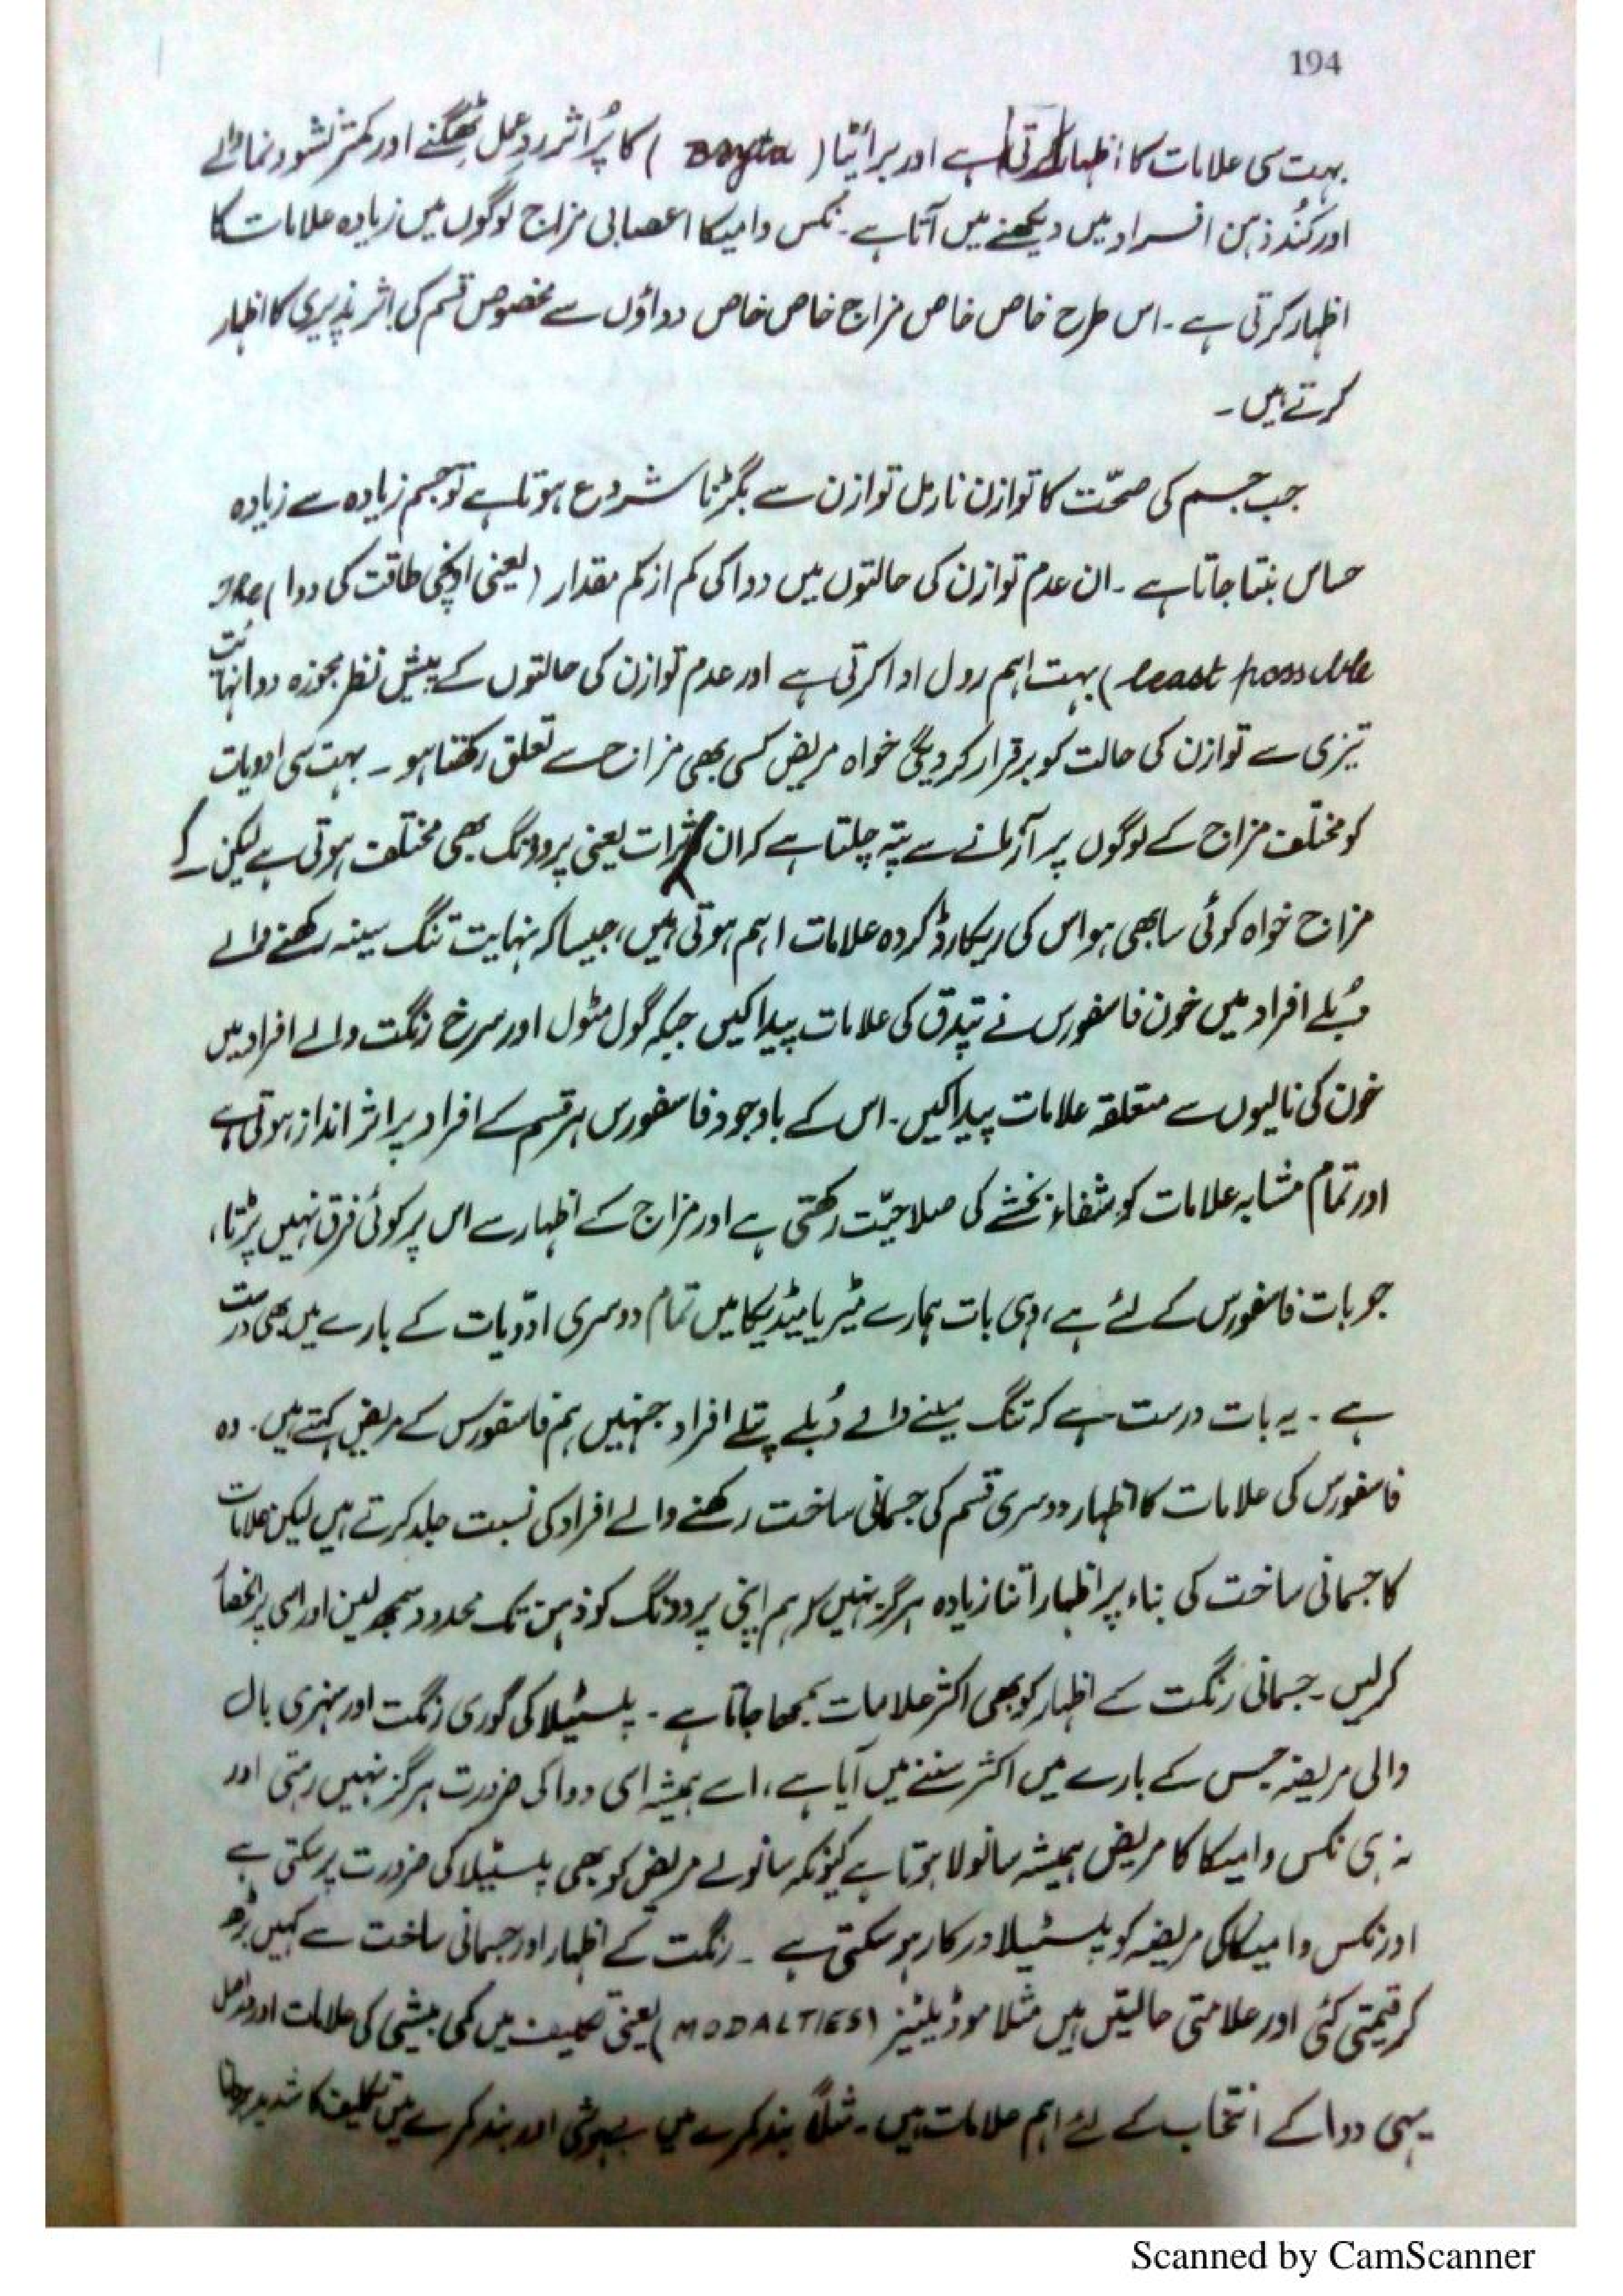 194
بہت سی علامات کا اظہار کرتی ہے اور برائیٹا ( Bayta ) کا پُر اثر ردِ عمل ٹھگنے اور کمتر نشو و نما والے
اور کُند ذہن افراد میں دیکھنے میں آتا ہے ۔ نکس وامیکا اعصابی مزاج لوگوں میں زیادہ علامات کا
اظہار کرتی ہے ۔ اس طرح خاص خاص مزاج خاص خاص دواؤں سے مخصوص قسم کی اثر پذیری کا اظہار
کرتے ہیں ۔
جب جسم کی صحّت کا توازن نارمل توازن سے بگڑنا شروع ہوتا ہے تو جسم زیادہ سے زیادہ
حساس بنتا جاتا ہے ۔ ان عدم توازن کی حالتوں میں دوا کی کم از کم مقدار ( یعنی اونچی طاقت کی دوا ) The
least possible ) بہت اہم رول ادا کرتی ہے اور عدم توازن کی حالتوں کے پیش نظر مجوزہ دوا نہایت
تیزی سے توازن کی حالت کو برقرار کر دیگی خواہ مریض کسی بھی مزاج سے تعلق رکھتا ہو ۔ بہت سی ادویات
کو مختلف مزاج کے لوگوں پر آزمانے سے پتہ چلتا ہے کہ ان اثرات یعنی پروونگ بھی مختلف ہوتی ہے لیکن
مزاج خواہ کوئی سا بھی ہو اس کی ریکارڈ کردہ علامات اہم ہوتی ہیں، جیسا کہ نہایت تنگ سینہ رکھنے والے
دُبلے افراد میں خون فاسفورس نے تپدق کی علامات پیدا کیں جبکہ گول مٹول اور سرخ رنگت والے افراد میں
خون کی نالیوں سے متعلقہ علامات پیدا کیں ۔ اس کے باوجود فاسفورس ہر قسم کے افراد پر اثر انداز ہوتی ہے
اور تمام مشابہ علامات کو شفاء بخشے کی صلاحیّت رکھتی ہے اور مزاج کے اظہار سے اس پر کوئی فرق نہیں پڑتا ،
جو بات فاسفورس کے لئے ہے ، وہی بات ہمارے میٹریا میڈیکا میں تمام دوسری ادّویات کے بارے میں بھی درست
ہے ۔ یہ بات درست ہے کہ تنگ سینے والے دُبلے پتلے افراد جنہیں ہم فاسفورس کے مریض کہتے ہیں ۔ وہ
فاسفورس کی علامات کا اظہار دوسری قسم کی جسمانی ساخت رکھنے والے افراد کی نسبت جلد کرتے ہیں لیکن علامات
کا جسمانی ساخت کی بناء پر اظہار اتنا زیادہ ہرگز نہیں کہ ہم اپنی پروونگ کو ذہن تک محدود سمجھ لیں اور اسی پر انحصار
کر لیں ۔ جسمانی رنگت کے اظہار کو بھی اکثر علامات سمجھا جاتا ہے ۔ پلسٹیلا کی گوری رنگت اور سنہری بال
والی مریضہ جس کے بارے میں اکثر سننے میں آیا ہے ، اسے ہمیشہ اسی دوا کی ضرورت ہرگز نہیں رہتی اور
نہ ہی نکس وامیکا کا مریض ہمیشہ سانولا ہوتا ہے کیونکہ سانولے مریض کو بھی پلسٹیلا کی ضرورت پڑ سکتی ہے
اور نکس وامیکا کی مریضہ کو پلسٹیلا درکار ہو سکتی ہے ۔ رنگت کے اظہار اور جسمانی ساخت سے کہیں بڑھ
کر قیمتی کئی اور علامتی حالتیں ہیں مثلا موڈیلیٹیز ( MODALTIES ) یعنی تکلیف میں کمی بیشی کی علامات اور دراصل
یہی دوا کے انتخاب کے لئے اہم علامات ہیں ۔ مثلاً بند کمرے میں بیہوشی اور بند کمرے میں تکلیف کا شدید ہو جانا
Scanned by CamScanner